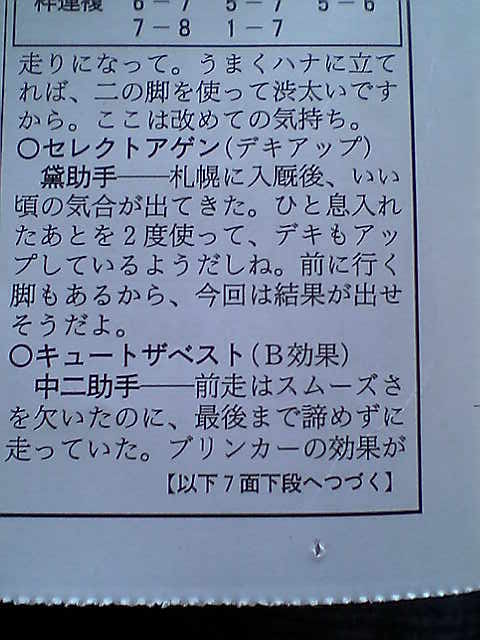 枠連複 6-7 5-7 5-6
7-8 1-7
走りになって。うまくハナに立て
れば、二の脚を使って渋太いです
から。ここは改めての気持ち。
○セレクトアゲン(デキアップ)
黛助手――札幌に入厩後、いい
頃の気合が出てきた。ひと息入れ
たあとを2度使って、デキもアッ
プしているようだしね。前に行く
脚もあるから、今回は結果が出せ
そうだよ。
○キュートザベスト(B効果)
中二助手――前走はスムーズさ
を欠いたのに、最後まで諦めずに
走っていた。ブリンカーの効果が
【以下7面下段へつづく】